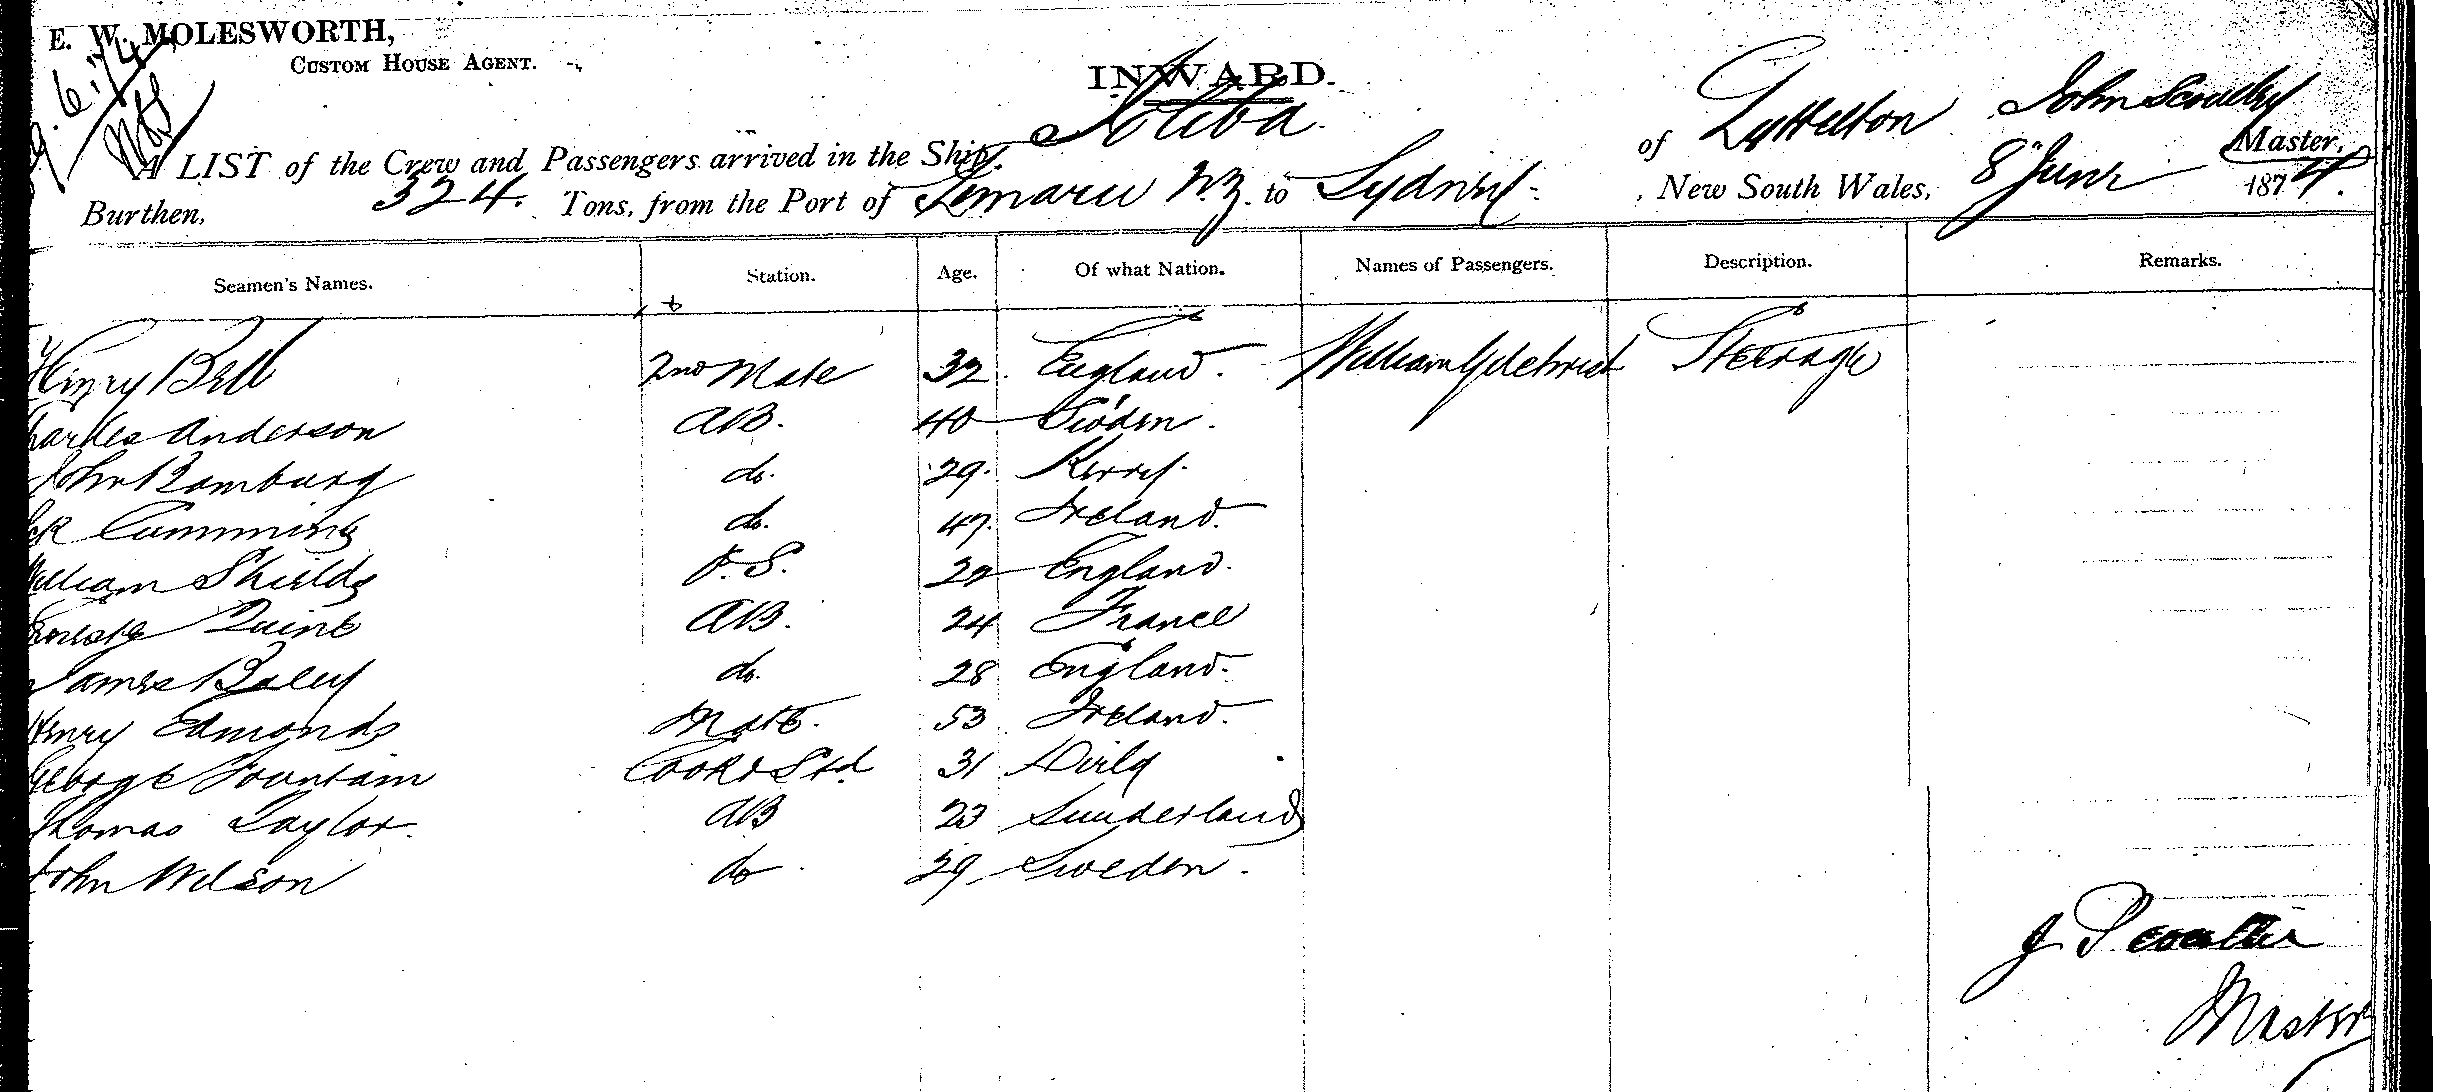 E. W. MOLESWORTH,
CUSTOM HOUSE AGENT.
9.6.74
INWARD.
A LIST of the Crew and Passengers arrived in the Ship, of Lyttelton John Master,
Burthen, 324. Tons, from the Port of Timaru N.Z. to Sydney , New South Wales, 8th June 1874.
Seamen's Names. Station. Age. Of what Nation. Names of Passengers. Description. Remarks.
Henry Bell 2nd Mate 32 England. William Gilchrist Steerage
Charles Anderson AB. 40 Sweden.
John do. 29.
Cumming do. 47. Ireland.
William Shields O.S. 22 England.
Quint AB. 24 France
James do. 28 England.
Henry Edmonds Mate. 53 Ireland.
George Fountain Cook & Std 31
Thomas Taylor. AB 23 Sunderland
John Wilson do 29 Sweden.
J
Master